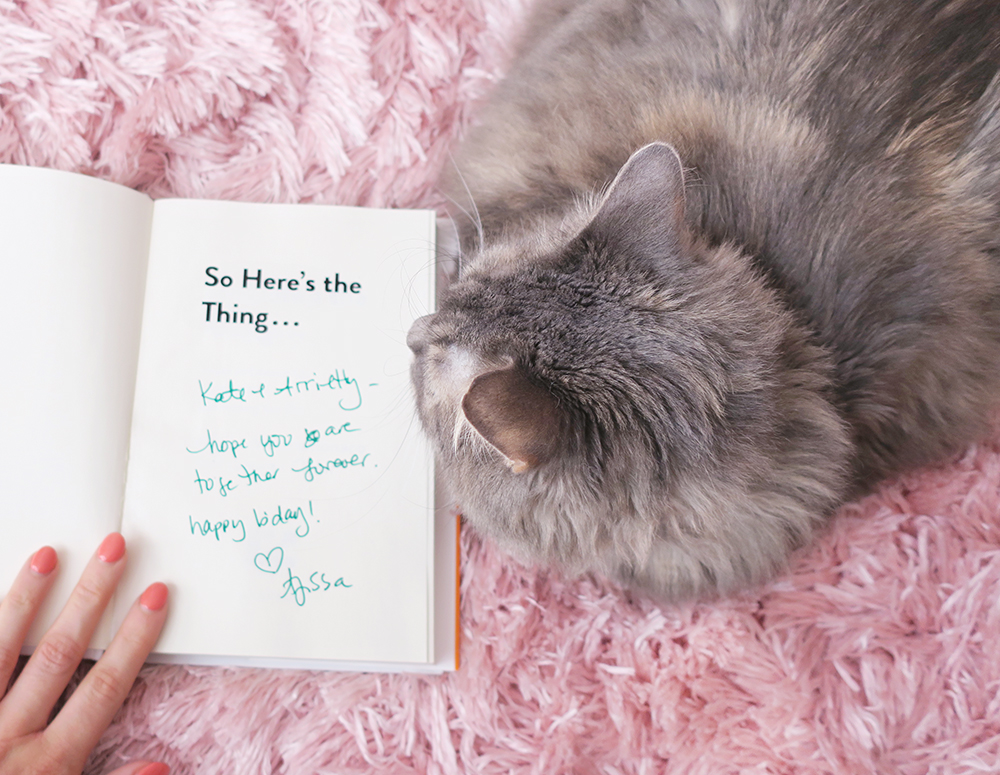 So Here's the
Thing...
Kate + Arrietty -
hope you are
together forever.
happy b'day!
♡ Alyssa